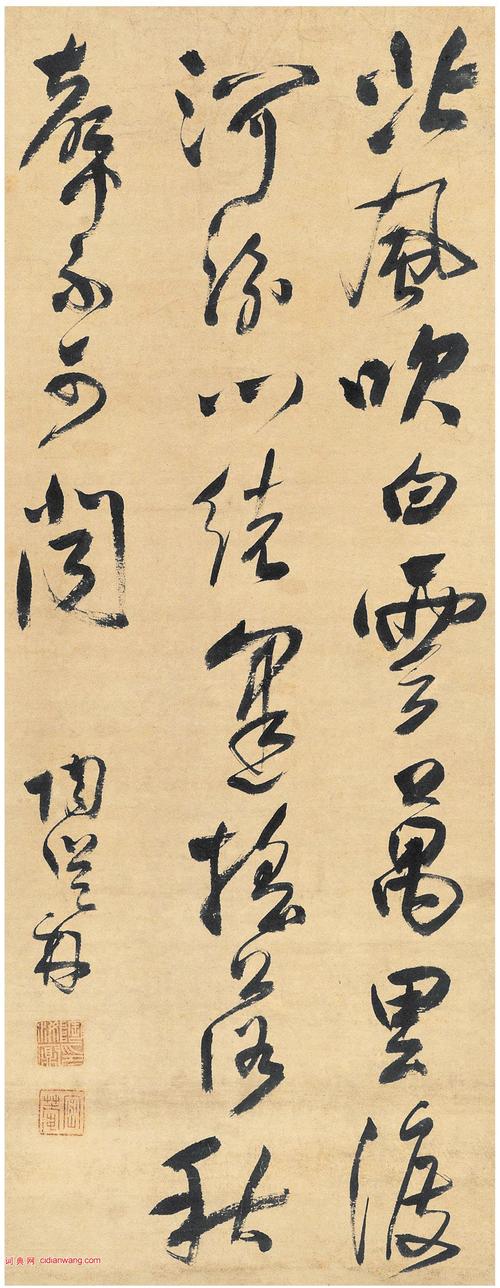 北風吹白雲萬里渡
河汾心緒逢搖落秋
聲不可聞
陶
词典网 cidianwang.com